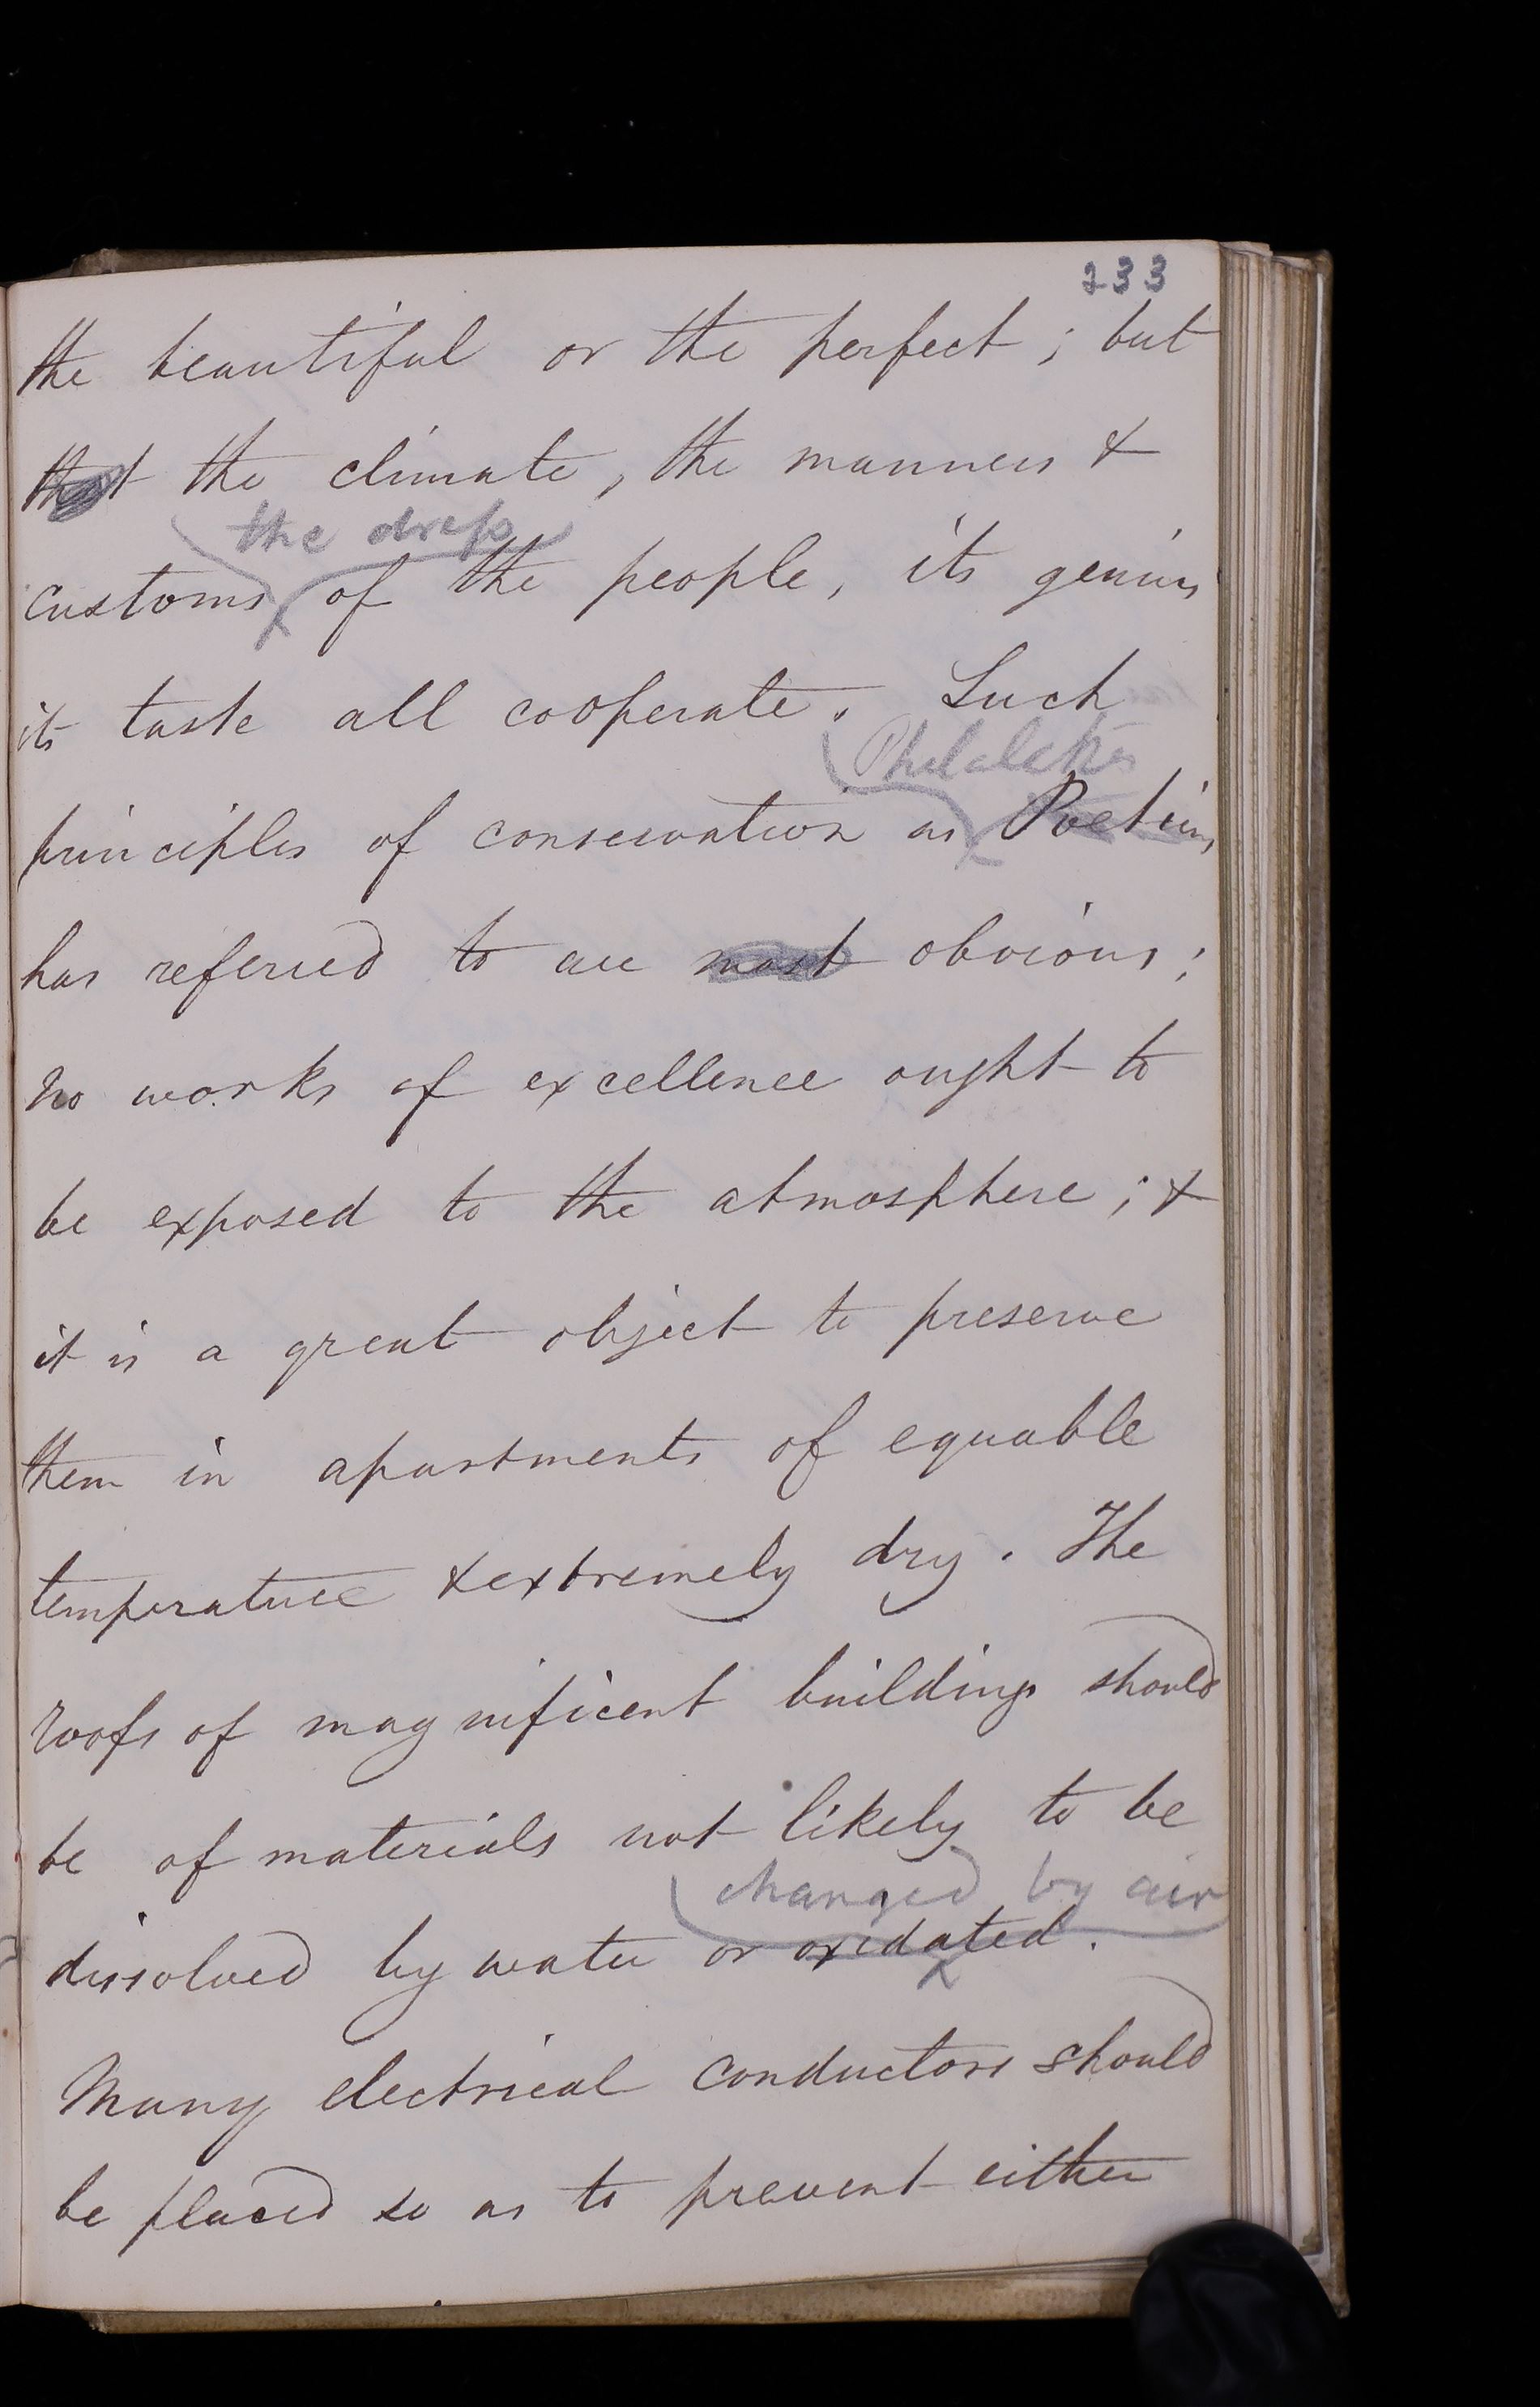 233
the beautiful or the perfect ; but
that the climate, the manners &
the dress
customs of the people, its genius
its taste all cooperate. Such
Philalethes
principles of conservation as Poetius
has referred to are most obvious ;
no works of excellence ought to
be exposed to the atmosphere ; &
it is a great object to preserve
them in apartments of equable
temperature & extremely dry. The
roofs of magnificent buildings should
be of materials not likely to be
changed by air
dissolved by water or oxidated.
Many electrical conductors should
be placed so as to prevent either